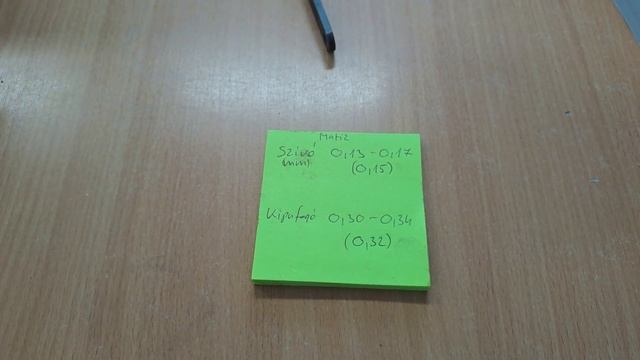 Matiz
Szívó 0,13-0,17
mm (0,15)
Kipufogó 0,30-0,34
(0,32)